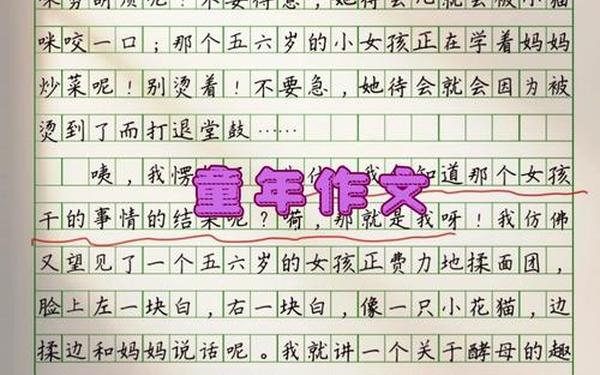 咪咬一口；那个五六岁的小女孩正在学着妈妈
炒菜呢！别烫着！不要急，她待会就会因为被
烫到了而打退堂鼓……
咦，我愣 知道那个女孩
童年作文
干的事情的结果呢？ 那就是我呀！我仿佛
又望见了一个五六岁的女孩正费力地揉面团，
脸上左一块白，右一块白，像一只小花猫，边
揉边和妈妈说话呢。我就讲一个关于酵母的趣